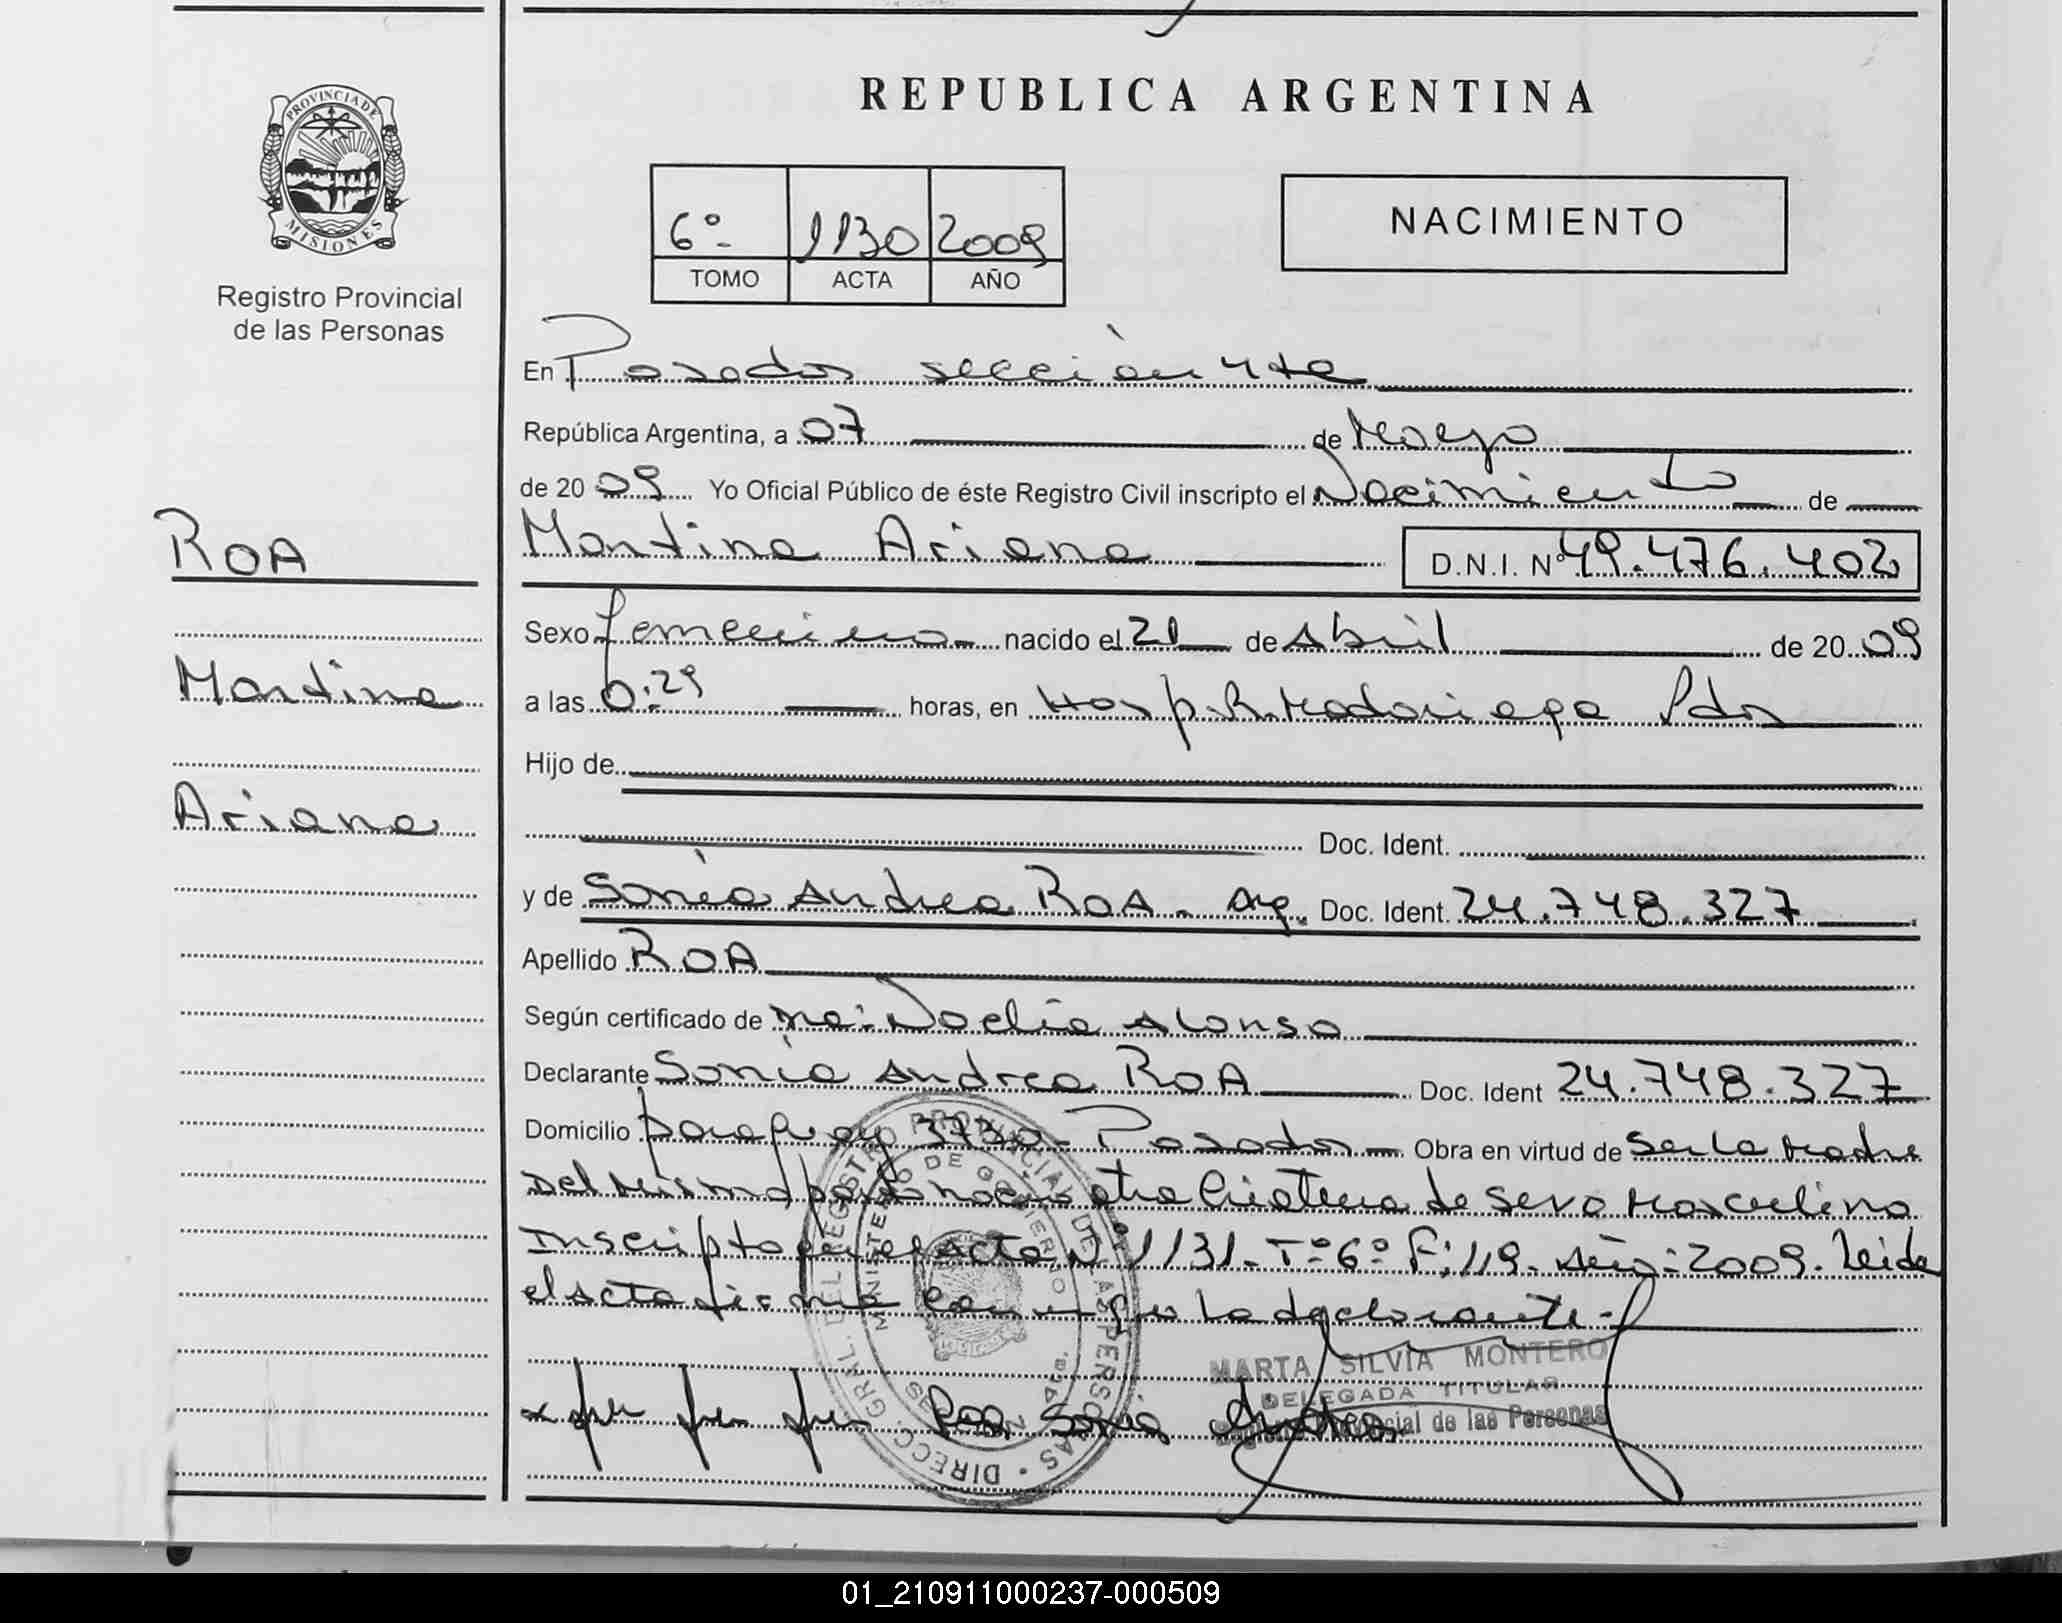 REPUBLICA ARGENTINA
PROVINCIA DE
MISIONES
Registro Provincial
de las Personas
6º 1130 2009
TOMO ACTA AÑO
NACIMIENTO
En Posadas sección 4ta
República Argentina, a 07 de Mayo
de 20 09 Yo Oficial Público de éste Registro Civil inscripto el Nacimiento de
ROA
Martina Ariana D.N.I. Nº 49.476.402
Sexo femenino nacido el 21 de Abril de 20 09
Martina
a las 0:29 horas, en Hosp. R. Madariaga Pdas
Hijo de
Ariana
Doc. Ident.
y de Sonia Andrea ROA - Arg. Doc. Ident. 24.748.327
Apellido ROA
Según certificado de Noelia Alonso
Declarante Sonia Andrea ROA Doc. Ident 24.748.327
Domicilio Paraguay 3730 - Posadas - Obra en virtud de Ser la Madre
Del mismo parto nació otra criatura de sexo Masculino
Inscripto en el acta Nº 1131 - Tº 6º F: 119 - Año: 2009. Leida
el acta firma conmigo la declarante -
MARTA SILVIA MONTERO
DELEGADA TITULAR
Registro Provincial de las Personas
Roa Sonia Andrea
DIRECC. GRAL. DEL REGISTRO PROVINCIAL DE LAS PERSONAS
MINISTERIO DE GOBIERNO
01_210911000237-000509